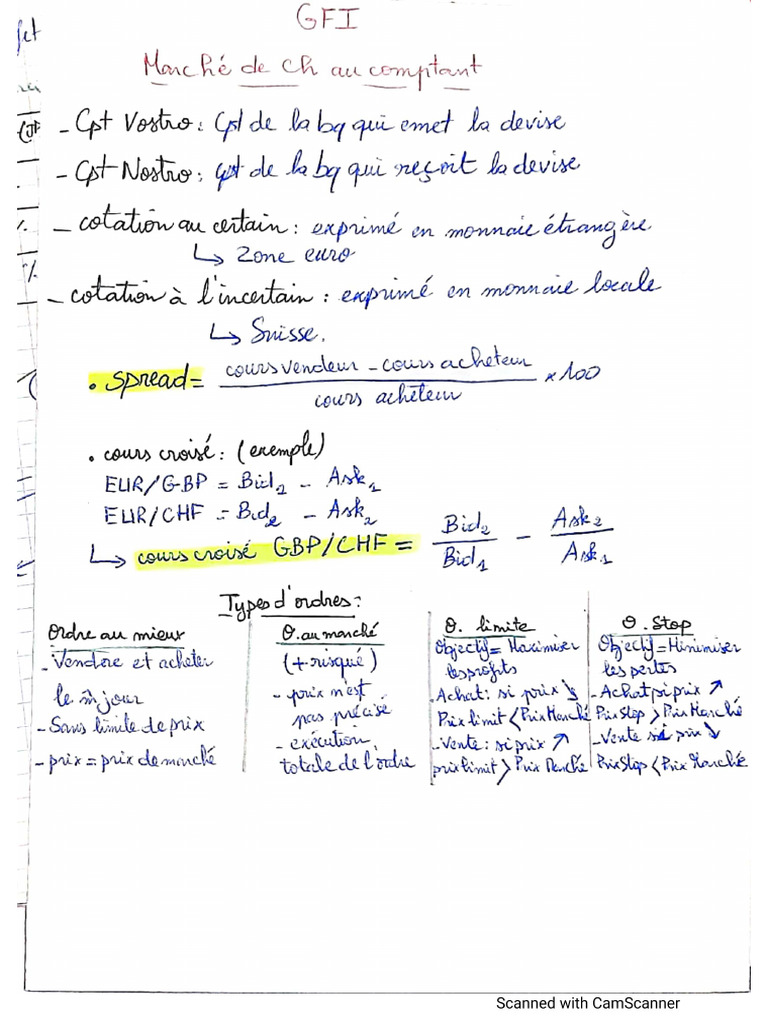 GFI
Marché de ch au comptant
- Cpt Vostro : Cpt de la bq qui emet la devise
- Cpt Nostro : cpt de la bq qui reçoit la devise
- cotation au certain : exprimé en monnaie étrangère
↳ Zone euro
- cotation à l'incertain : exprimé en monnaie locale
↳ Suisse.
• Spread = cours vendeur - cours acheteur / cours acheteur × 100
• cours croisé : (exemple)
EUR/GBP = Bid2 - Ask1
EUR/CHF = Bid2 - Ask2
↳ cours croisé GBP/CHF = Bid2 / Bid1 - Ask2 / Ask1
Types d'ordres :
Ordre au mieux
- Vendre et acheter
le m̂ jour
- Sans limite de prix
- prix = prix de marché
O. au marché
(+ risqué)
- prix n'est
pas précisé
- exécution
totale de l'ordre
O. limite
Objectif = Maximiser
les profits
- Achat : si prix ↘
Prix limit < Prix Marché
- Vente : si prix ↗
prix limit > Prix Marché
O. Stop
Objectif = Minimiser
les pertes
- Achat si prix ↗
Prix Stop > Prix Marché
- Vente si prix ↘
Prix Stop < Prix Marché
Scanned with CamScanner